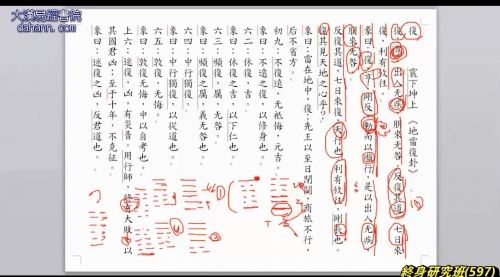 大漢易經書院
dahann.com
復
震下坤上 《地雷復卦》
復，亨。出入无疾，朋來无咎。反復其道，七日來
復，利有攸往
彖曰：復，亨，剛反，動而以順行，是以出入无疾
朋來无咎。
反復其道，七日來復，天行也。利有攸往，剛長也。
復其見天地之心乎？
象曰：雷在地中，復；先王以至日閉關，商旅不行，
后不省方。
初九：不復遠，无祗悔，元吉。
象曰：不遠之復，以修身也。
六二：休復，吉。
象曰：休復之吉，以下仁也。
六三：頻復，厲，无咎。
象曰：頻復之厲，義无咎也。
六四：中行獨復。
象曰：中行獨復，以從道也。
六五：敦復，无悔。
象曰：敦復无悔，中以自考也。
上六：迷復，凶，有災眚，用行師，終有大敗，以
其國君凶，至于十年，不克征。
象曰：迷復之凶，反君道也。
終身研究班(597)